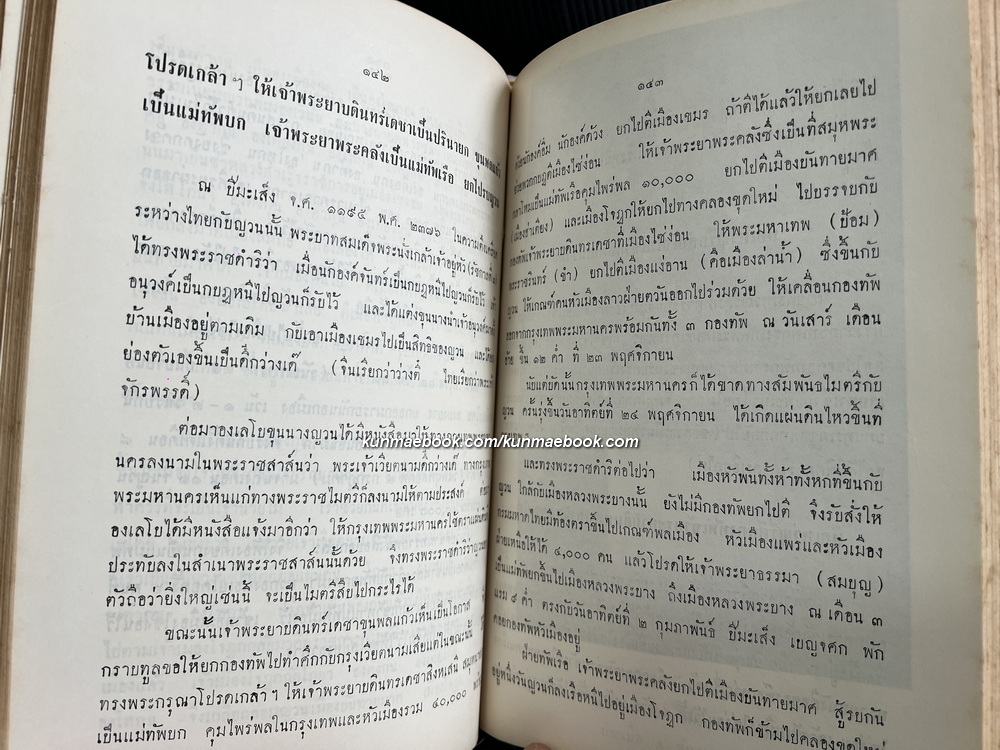 ๑๔๒
โปรดเกล้า ฯ ให้เจ้าพระยาบดินทร์เดชาเป็นปรินายก ขุนพลแก้ว
เป็นแม่ทัพบก เจ้าพระยาพระคลังเป็นแม่ทัพเรือ ยกไปราบญวน
ณ ปีมะเส็ง จ.ศ. ๑๑๙๕ พ.ศ. ๒๓๗๖ ในความ
ระหว่างไทยกับญวนนั้น พระบาทสมเด็จพระนั่งเกล้าเจ้าอยู่หัว
ได้ทรงพระราชดำริว่า เมื่อนักองค์จันทร์เป็นกบฏหนีไปญวนก็รับไว้
อนุวงศ์เป็นกบฏหนีไปญวนก็รับไว้ และได้แต่งขุนนางนำเจ้าอนุวงศ์
บ้านเมืองอยู่ตามเดิม กับเอาเมืองเขมรไปเป็นสิทธิของญวน และ
ย่องตัวเองขึ้นเป็นดึ๊กว่างเด๊ (จีนเรียกว่าว่างตี่ ไทยเรียกว่าพระ
จักรพรรดิ์)
ต่อมาองเลโบขุนนางญวนได้มีหนังสือ
นครลงนามในพระราชสาส์นว่า พระเจ้าเวียดนามดึ๊กว่างเด๊ ทางกรุงเทพ
พระมหานครเห็นแก่ทางพระราชไมตรีก็ลงนามให้ตามประสงค์
องเลโบได้มีหนังสือแจ้งมาอีกว่า ให้กรุงเทพพระมหานครใช้ตราแผ่น
ประทับลงในสำเนาพระราชสาส์นนั้นด้วย จึงทรงพระราชดำริว่าญวน
ตัวถือว่ายิ่งใหญ่เช่นนี้ จะเป็นไมตรีสืบไปกระไรได้
ขณะนั้นเจ้าพระยาบดินทร์เดชาขุนพลแก้วเห็นเป็นโอกาส
กราบทูลขอให้ยกกองทัพไปทำศึกกับกรุงเวียดนามเสียแต่ในขณะนั้น
ทรงพระกรุณาโปรดเกล้าฯ ให้เจ้าพระยาบดินทรเดชาสิงหเสนี
เป็นแม่ทัพบก คุมไพร่พลในกรุงเทพและหัวเมืองรวม ๔๐,๐๐๐
๑๔๓
นักองค์อิ่ม นักองค์ด้วง ยกไปตีเมืองเขมร ถ้าตีได้แล้วให้ยกเลยไป
ตีเมืองไซ่ง่อน ให้เจ้าพระยาพระคลังซึ่งเป็นที่สมุหพระ
กลาโหมเป็นแม่ทัพเรือคุมไพร่พล ๑๐,๐๐๐ ยกไปตีเมืองบันทายมาศ
(เมืองฮ่าเตียง) และเมืองโจฎกให้ยกไปทางคลองขุดใหม่ ไปบรรจบกับ
กองทัพเจ้าพระยาบดินทรเดชาที่เมืองไซ่ง่อน ให้พระมหาเทพ (ป้อม)
พระราชรินทร์ (ขำ) ยกไปตีเมืองแง่อาน (คือเมืองล่าน้ำ) ซึ่งขึ้นกับ
ญวน ให้เกณฑ์คนหัวเมืองลาวฝ่ายตวันออกไปร่วมด้วย ให้เคลื่อนกองทัพ
ออกจากกรุงเทพพระมหานครพร้อมกันทั้ง ๓ กองทัพ ณ วันเสาร์ เดือน
อ้าย ขึ้น ๑๒ ค่ำ ที่ ๒๓ พฤศจิกายน
นับแต่บัดนั้นกรุงเทพพระมหานครก็ได้ขาดทางสัมพันธไมตรีกับ
ญวน ครั้นรุ่งขึ้นวันอาทิตย์ที่ ๒๔ พฤศจิกายน ได้เกิดแผ่นดินไหวขึ้นที่
kunmaebook.com/kunmaebook.com
และทรงพระราชดำริต่อไปว่า เมืองหัวพันทั้งห้าทั้งหกที่ขึ้นกับ
ญวน ใกล้กับเมืองหลวงพระบางนั้น ยังไม่มีกองทัพยกไปตี จึงรับสั่งให้
กรมมหาดไทยมีท้องตราขึ้นไปเกณฑ์พลเมือง หัวเมืองแพร่และหัวเมือง
ฝ่ายเหนือให้ได้ ๔,๐๐๐ คน แล้วโปรดให้เจ้าพระยาธรรมา (สมบุญ)
เป็นแม่ทัพยกขึ้นไปเมืองหลวงพระบาง ถึงเมืองหลวงพระบาง ณ เดือน ๓
แรม ๘ ค่ำ ตรงกับวันอาทิตย์ที่ ๒ กุมภาพันธ์ ปีมะเส็ง เบญจศก พัก
คอยกองทัพหัวเมืองอยู่
ฝ่ายทัพเรือ เจ้าพระยาพระคลังยกไปตีเมืองบันทายมาศ สู้รบกัน
อยู่หนึ่งวันญวนก็ลงเรือหนีไปอยู่เมืองโจฎก กองทัพก็ข้ามไปคลองขุดใหม่